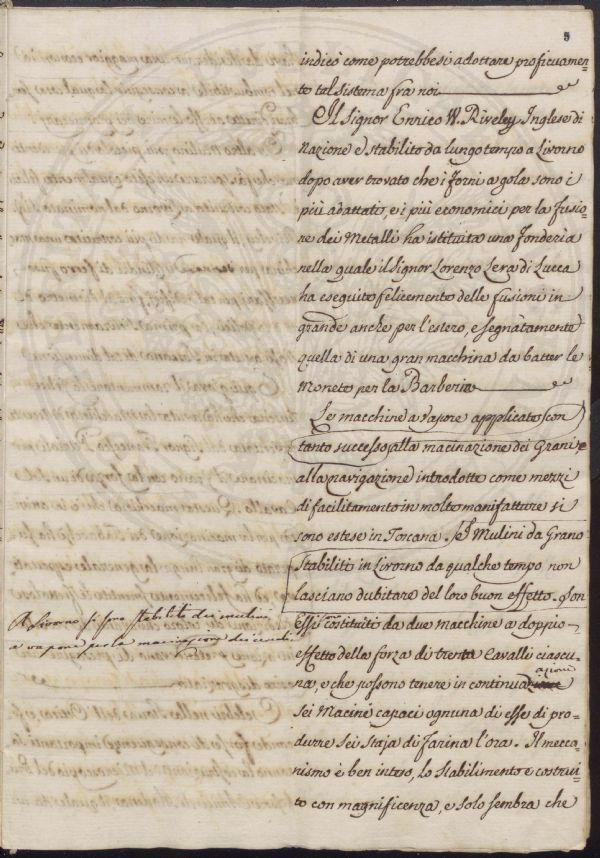 5
indicò come potrebbesi adottare proficuamen=
to tal sistema fra noi
Il Signor Enrico W. Riveley Inglese di
Nazione e stabilito da lungo tempo a Livorno
dopo aver trovato che i forni a gola sono i
più adattati, e i più economici per la fusio=
ne dei Metalli ha istituita una fonderia
nella quale il Signor Lorenzo Lera di Lucca
ha eseguito felicemente delle fusioni in
grande anche per l'estero, e segnatamente
quella di una gran macchina da batter le
Monete per la Barberia
Le macchine a vapore applicate con
tanto successo alla macinazione dei Grani e
alla navigazione introdotte come mezzi
di facilitamento in molte manifatture si
sono estese in Toscana. I Mulini da Grano
stabiliti in Livorno da qualche tempo non
lasciano dubitare del loro buon effetto. Son
A Livorno si sono stabiliti dei mulini
a vapore per la macinazione dei
Essi sono costituiti da due macchine a doppio
effetto della forza di trenta Cavalli ciascu=
na, e che possono tenere in continua azione
sei Macine capaci ognuna di esse di pro=
durre sei staja di farina l'ora. Il mecca=
nismo è ben inteso, lo stabilimento è costrui=
to con magnificenza, e solo sembra che